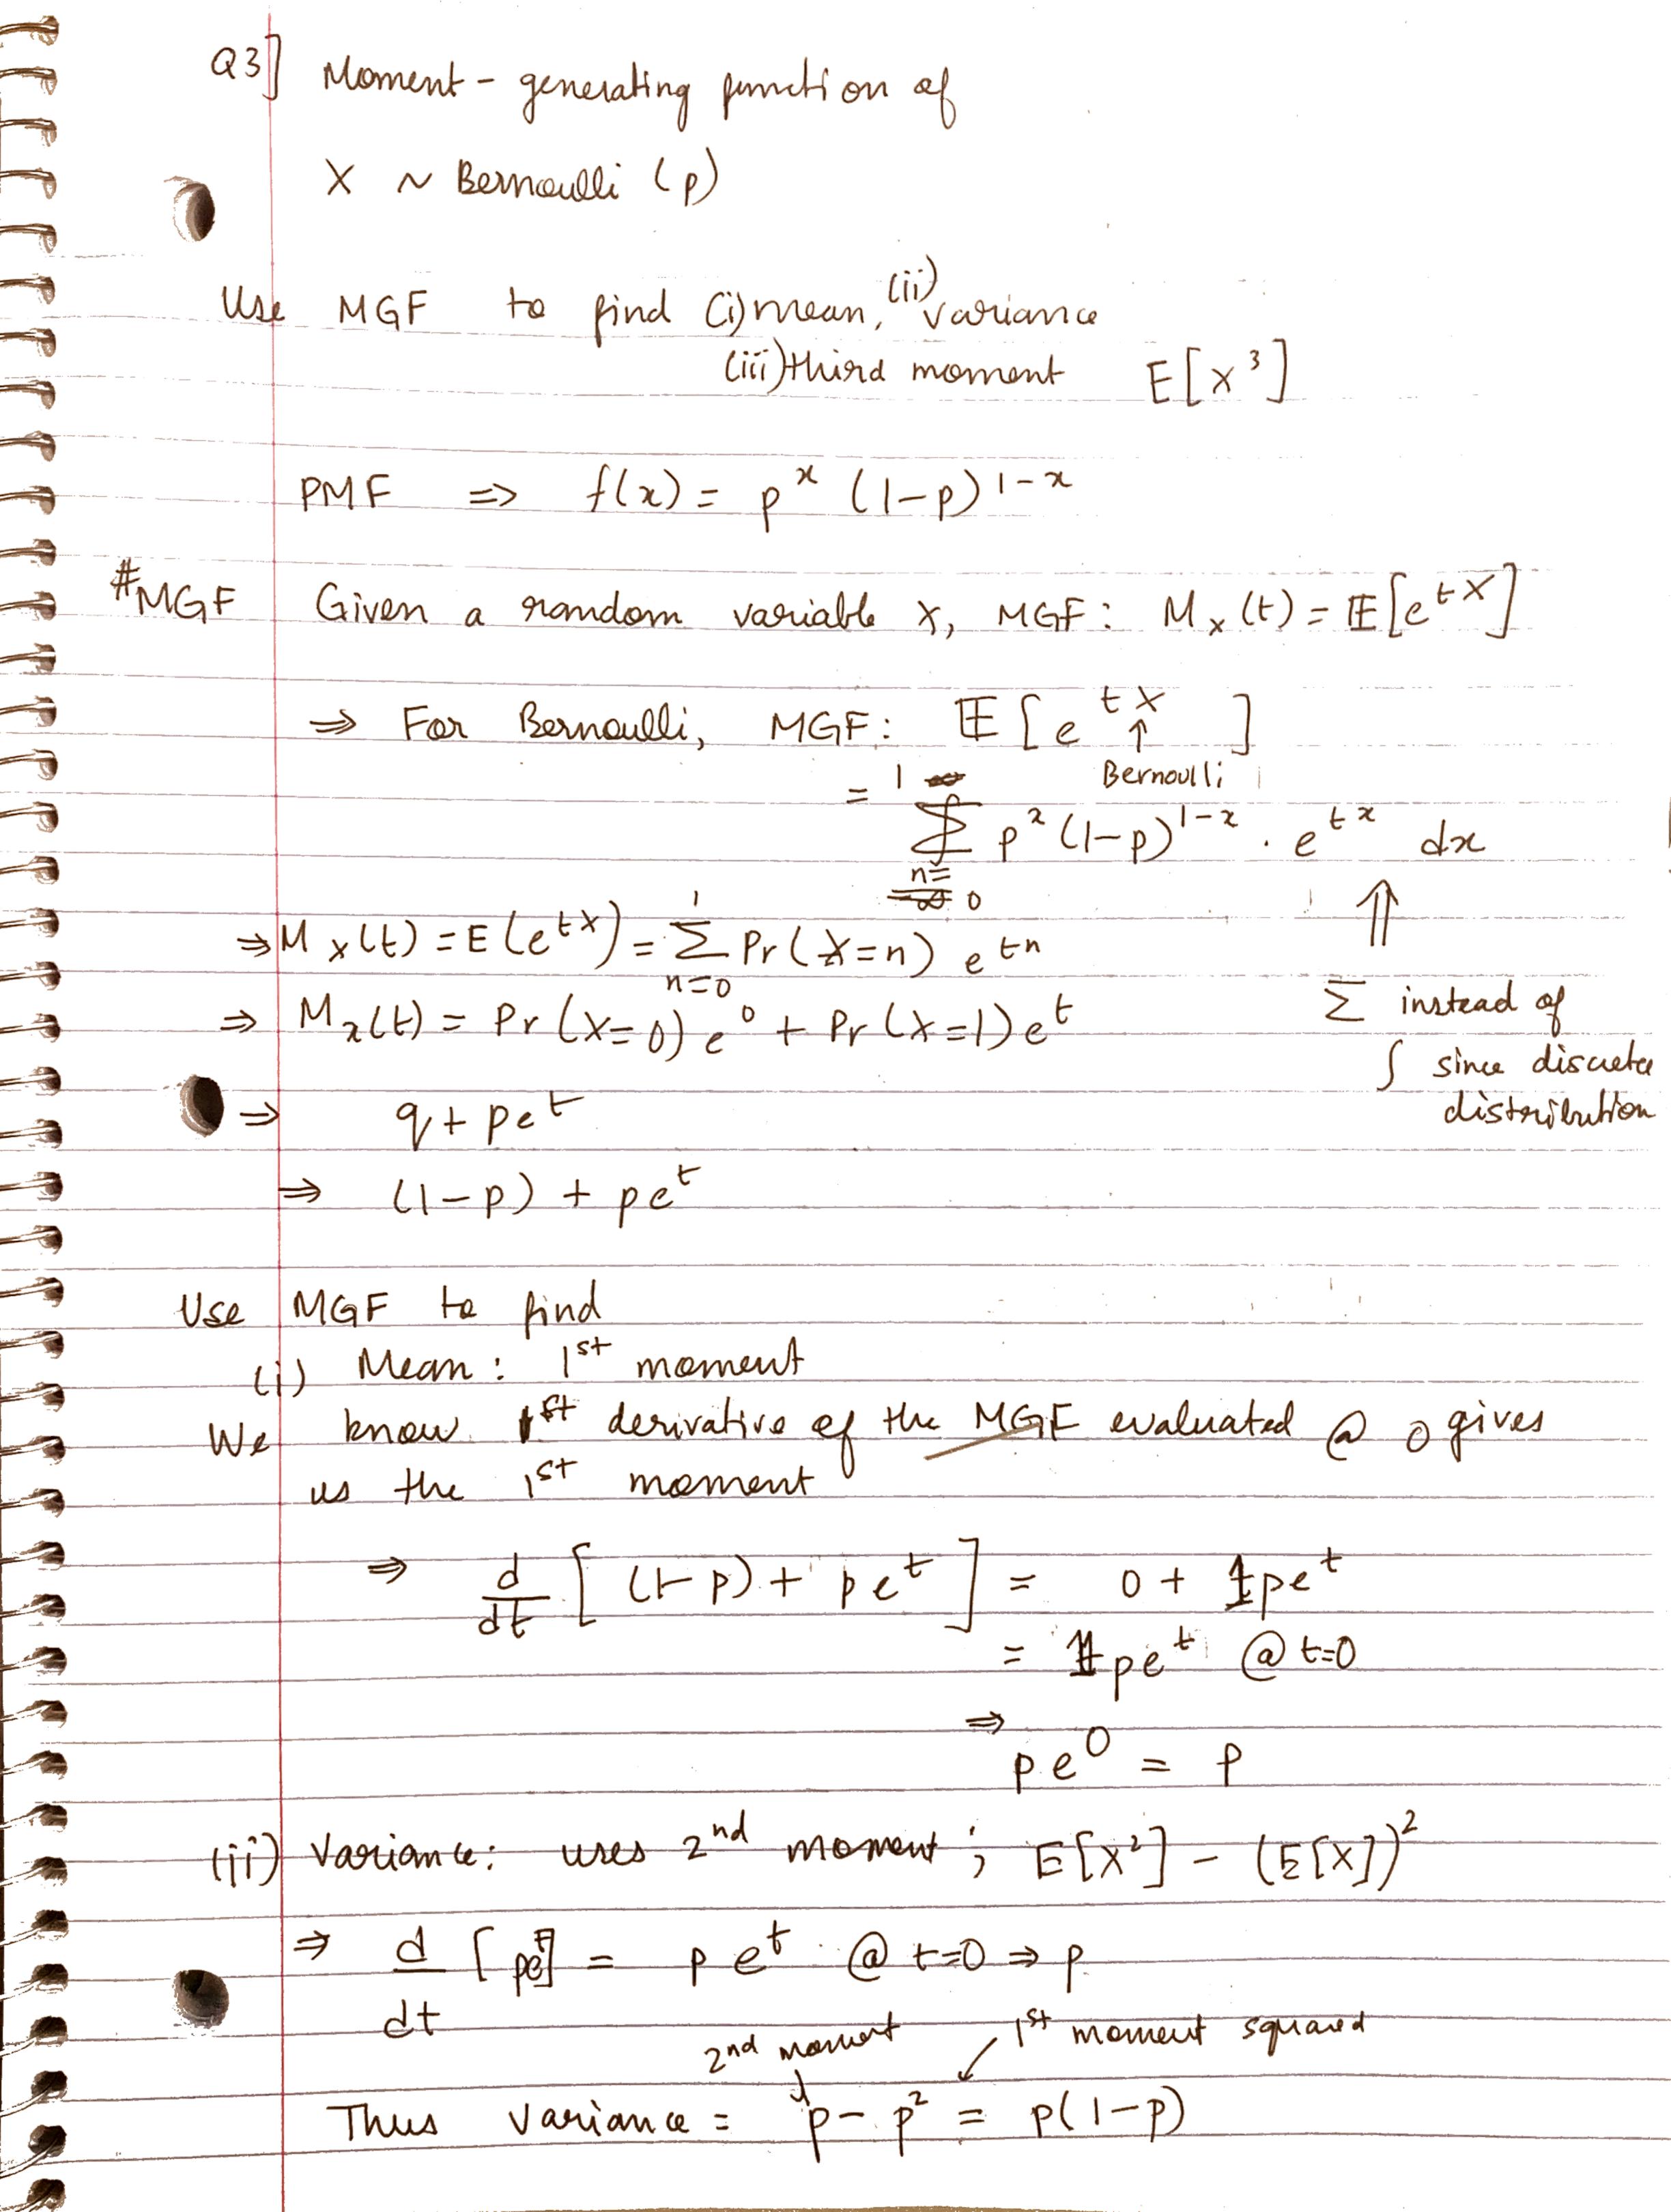 Q3] Moment-generating function of
X ~ Bernoulli (p)
Use MGF to find (i) mean, (ii) variance
(iii) third moment E[X³]
PMF ⇒ f(x) = p^x (1-p)^{1-x}
#MGF Given a random variable X, MGF: M_X(t) = E[e^{tX}]
⇒ For Bernoulli, MGF: E[e^{tX}]
↑
Bernoulli
= ∑_{n=0}^{1} p^x (1-p)^{1-x} · e^{tx} dx
⇑
∑ instead of
∫ since discrete
distribution
⇒ M_X(t) = E(e^{tX}) = ∑_{n=0}^{1} Pr(X=n) e^{tn}
⇒ M_x(t) = Pr(X=0) e^0 + Pr(X=1) e^t
⇒ q + pe^t
⇒ (1-p) + pe^t
Use MGF to find
(i) Mean: 1st moment
We know 1st derivative of the MGF evaluated @ 0 gives
us the 1st moment
⇒ d/dt [(1-p) + pe^t] = 0 + 1pe^t
= pe^t @ t=0
⇒
pe^0 = p
(ii) Variance: uses 2nd moment; E[X²] - (E[X])²
⇒ d/dt [pe^t] = pe^t @ t=0 ⇒ p
2nd moment ↓ ↙ 1st moment squared
Thus variance = p - p² = p(1-p)